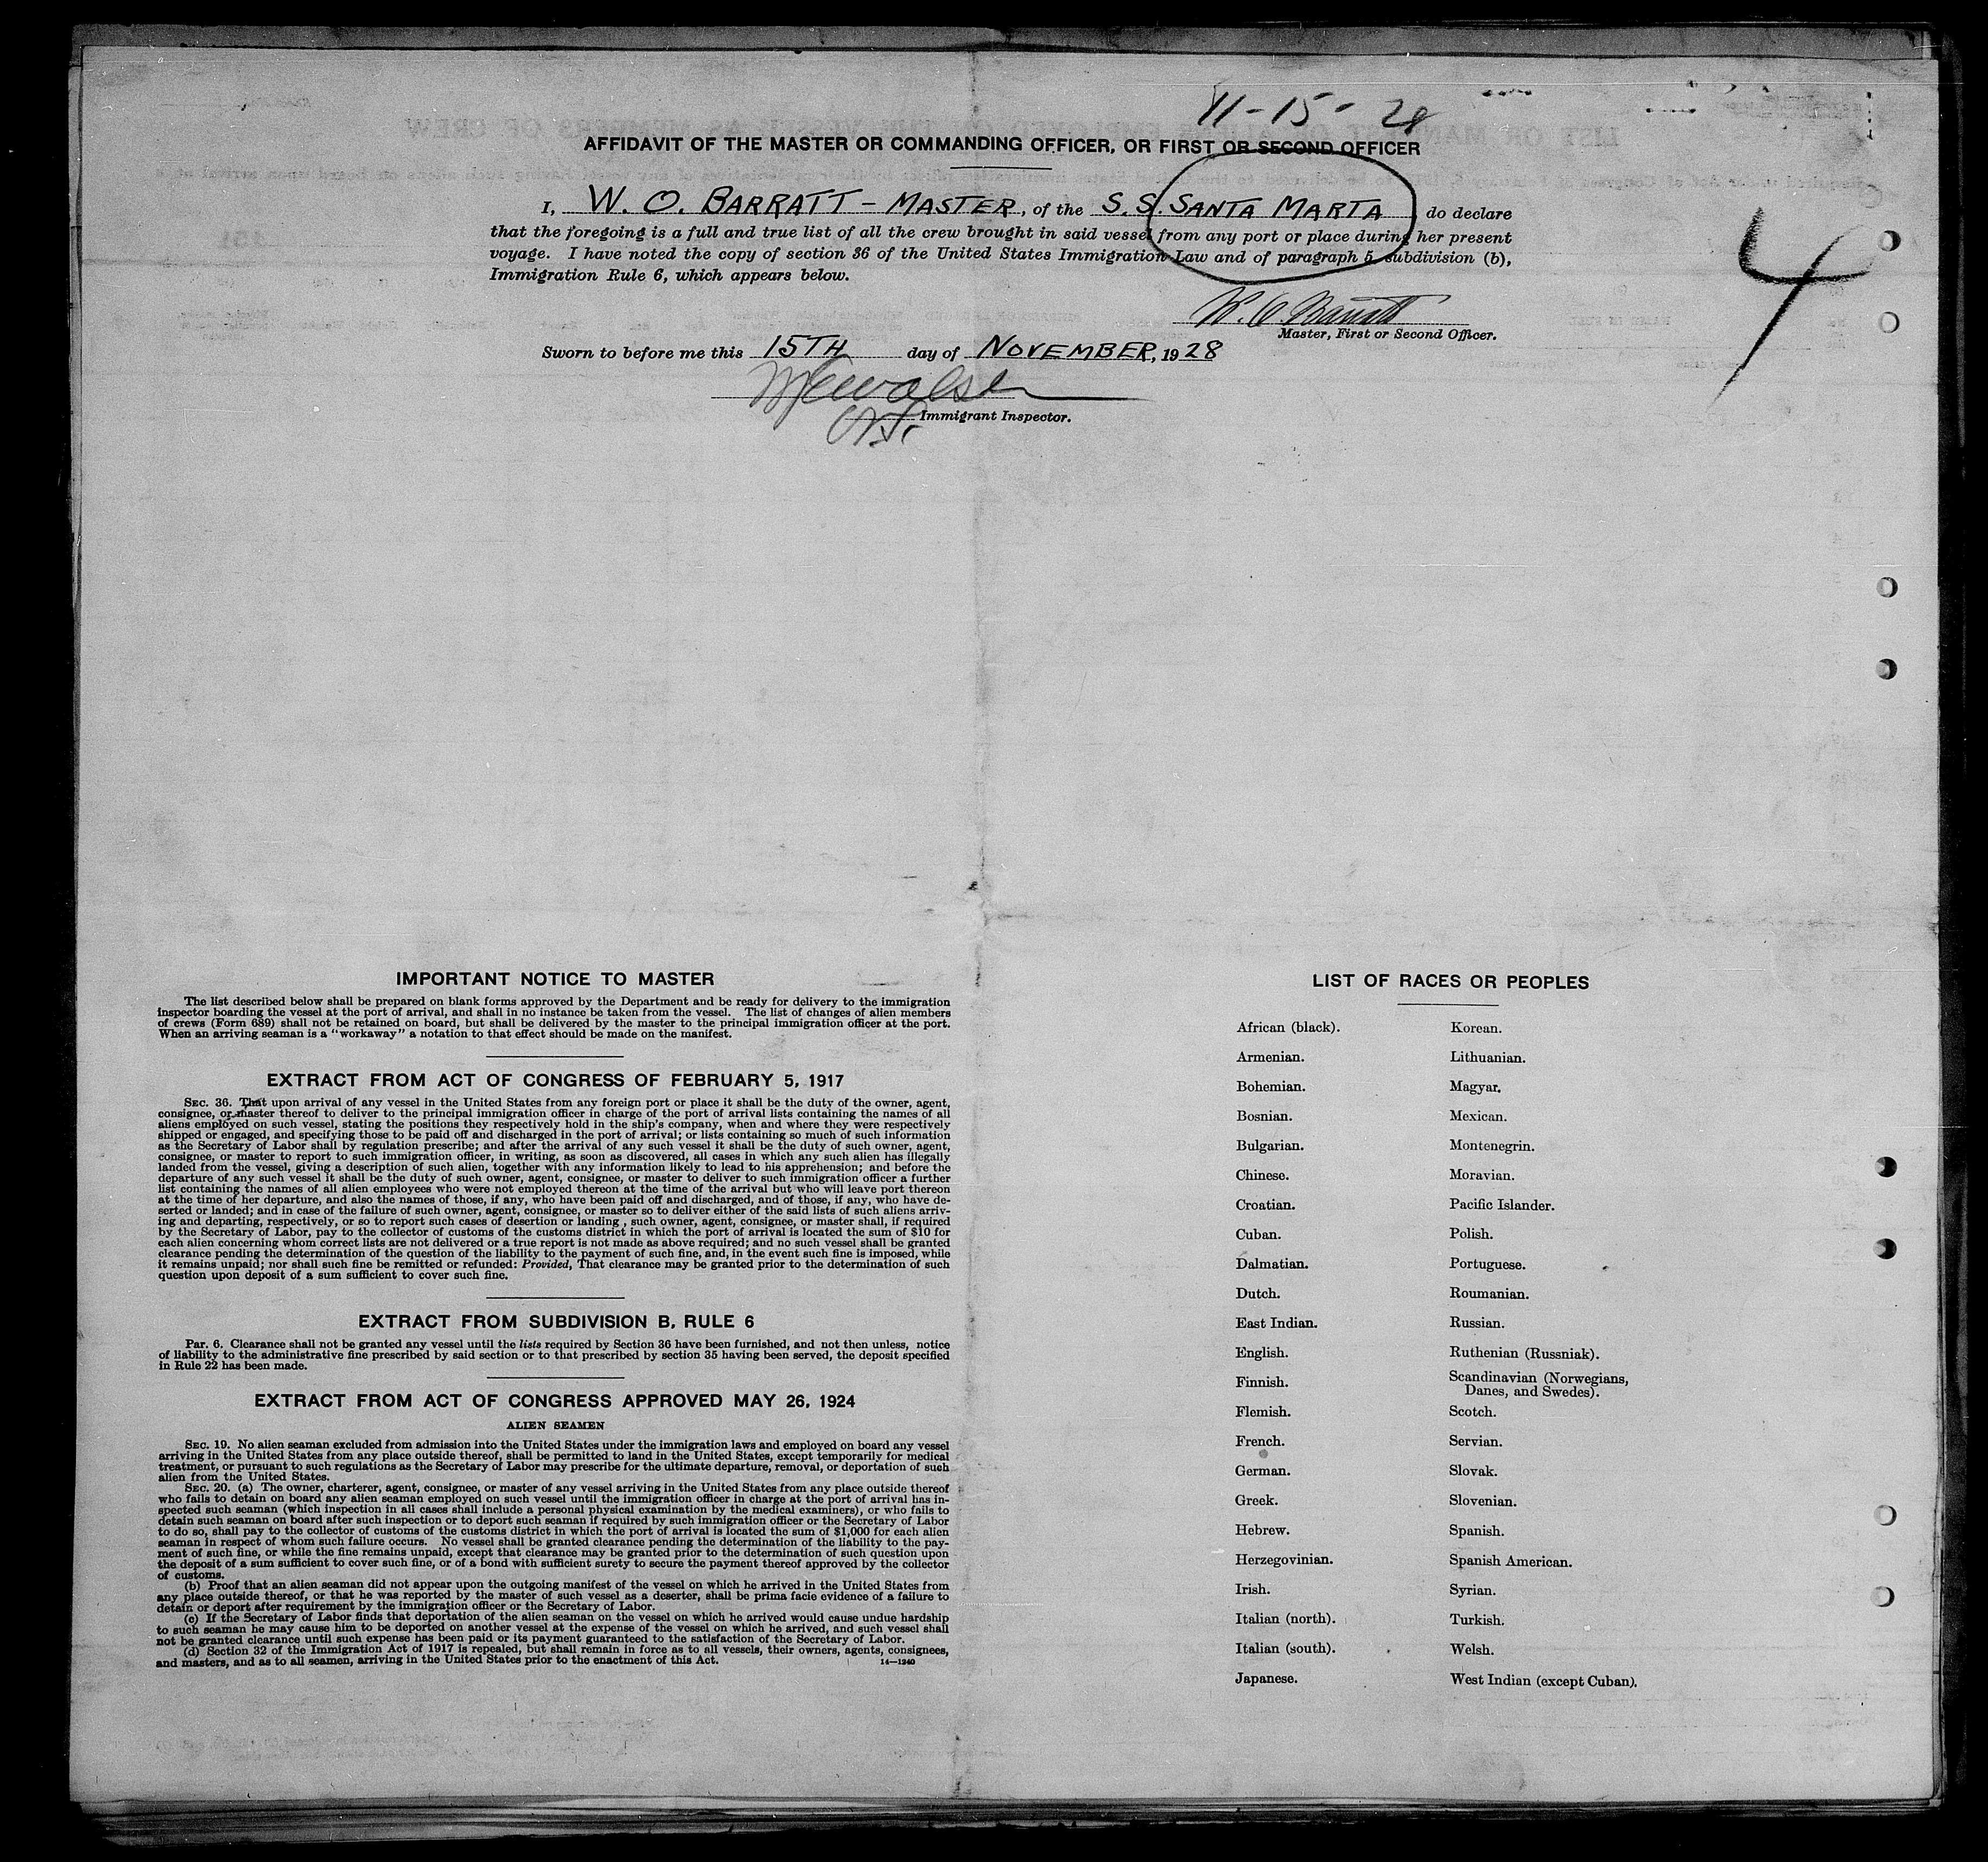 11-15-28
AFFIDAVIT OF THE MASTER OR COMMANDING OFFICER, OR FIRST OR SECOND OFFICER
I, W. O. BARRATT - MASTER, of the S.S. SANTA MARTA do declare
that the foregoing is a full and true list of all the crew brought in said vessel from any port or place during her present
voyage. I have noted the copy of section 36 of the United States Immigration Law and of paragraph 5, subdivision (b),
Immigration Rule 6, which appears below.
4
W. O. Barratt
Master, First or Second Officer.
Sworn to before me this 15TH day of NOVEMBER, 1928
Immigrant Inspector.
IMPORTANT NOTICE TO MASTER
The list described below shall be prepared on blank forms approved by the Department and be ready for delivery to the immigration
inspector boarding the vessel at the port of arrival, and shall in no instance be taken from the vessel. The list of changes of alien members
of crews (Form 689) shall not be retained on board, but shall be delivered by the master to the principal immigration officer at the port.
When an arriving seaman is a "workaway" a notation to that effect should be made on the manifest.
EXTRACT FROM ACT OF CONGRESS OF FEBRUARY 5, 1917
SEC. 36. That upon arrival of any vessel in the United States from any foreign port or place it shall be the duty of the owner, agent,
consignee, or master thereof to deliver to the principal immigration officer in charge of the port of arrival lists containing the names of all
aliens employed on such vessel, stating the positions they respectively hold in the ship's company, when and where they were respectively
shipped or engaged, and specifying those to be paid off and discharged in the port of arrival; or lists containing so much of such information
as the Secretary of Labor shall by regulation prescribe; and after the arrival of any such vessel it shall be the duty of such owner, agent,
consignee, or master to report to such immigration officer, in writing, as soon as discovered, all cases in which any such alien has illegally
landed from the vessel, giving a description of such alien, together with any information likely to lead to his apprehension; and before the
departure of any such vessel it shall be the duty of such owner, agent, consignee, or master to deliver to such immigration officer a further
list containing the names of all alien employees who were not employed thereon at the time of the arrival but who will leave port thereon
at the time of her departure, and also the names of those, if any, who have been paid off and discharged, and of those, if any, who have de-
serted or landed; and in case of the failure of such owner, agent, consignee, or master so to deliver either of the said lists of such aliens arriv-
ing and departing, respectively, or so to report such cases of desertion or landing , such owner, agent, consignee, or master shall, if required
by the Secretary of Labor, pay to the collector of customs of the customs district in which the port of arrival is located the sum of $10 for
each alien concerning whom correct lists are not delivered or a true report is not made as above required; and no such vessel shall be granted
clearance pending the determination of the question of the liability to the payment of such fine, and, in the event such fine is imposed, while
it remains unpaid; nor shall such fine be remitted or refunded: Provided, That clearance may be granted prior to the determination of such
question upon deposit of a sum sufficient to cover such fine.
EXTRACT FROM SUBDIVISION B, RULE 6
Par. 6. Clearance shall not be granted any vessel until the lists required by Section 36 have been furnished, and not then unless, notice
of liability to the administrative fine prescribed by said section or to that prescribed by section 35 having been served, the deposit specified
in Rule 22 has been made.
EXTRACT FROM ACT OF CONGRESS APPROVED MAY 26, 1924
ALIEN SEAMEN
SEC. 19. No alien seaman excluded from admission into the United States under the immigration laws and employed on board any vessel
arriving in the United States from any place outside thereof, shall be permitted to land in the United States, except temporarily for medical
treatment, or pursuant to such regulations as the Secretary of Labor may prescribe for the ultimate departure, removal, or deportation of such
alien from the United States.
SEC. 20. (a) The owner, charterer, agent, consignee, or master of any vessel arriving in the United States from any place outside thereof
who fails to detain on board any alien seaman employed on such vessel until the immigration officer in charge at the port of arrival has in-
spected such seaman (which inspection in all cases shall include a personal physical examination by the medical examiners), or who fails to
detain such seaman on board after such inspection or to deport such seaman if required by such immigration officer or the Secretary of Labor
to do so, shall pay to the collector of customs of the customs district in which the port of arrival is located the sum of $1,000 for each alien
seaman in respect of whom such failure occurs. No vessel shall be granted clearance pending the determination of the liability to the pay-
ment of such fine, or while the fine remains unpaid, except that clearance may be granted prior to the determination of such question upon
the deposit of a sum sufficient to cover such fine, or of a bond with sufficient surety to secure the payment thereof approved by the collector
of customs.
(b) Proof that an alien seaman did not appear upon the outgoing manifest of the vessel on which he arrived in the United States from
any place outside thereof, or that he was reported by the master of such vessel as a deserter, shall be prima facie evidence of a failure to
detain or deport after requirement by the immigration officer or the Secretary of Labor.
(c) If the Secretary of Labor finds that deportation of the alien seaman on the vessel on which he arrived would cause undue hardship
to such seaman he may cause him to be deported on another vessel at the expense of the vessel on which he arrived, and such vessel shall
not be granted clearance until such expense has been paid or its payment guaranteed to the satisfaction of the Secretary of Labor.
(d) Section 32 of the Immigration Act of 1917 is repealed, but shall remain in force as to all vessels, their owners, agents, consignees,
and masters, and as to all seamen, arriving in the United States prior to the enactment of this Act.
14—1240
LIST OF RACES OR PEOPLES
African (black).
Armenian.
Bohemian.
Bosnian.
Bulgarian.
Chinese.
Croatian.
Cuban.
Dalmatian.
Dutch.
East Indian.
English.
Finnish.
Flemish.
French.
German.
Greek.
Hebrew.
Herzegovinian.
Irish.
Italian (north).
Italian (south).
Japanese.
Korean.
Lithuanian.
Magyar.
Mexican.
Montenegrin.
Moravian.
Pacific Islander.
Polish.
Portuguese.
Roumanian.
Russian.
Ruthenian (Russniak).
Scandinavian (Norwegians,
Danes, and Swedes).
Scotch.
Servian.
Slovak.
Slovenian.
Spanish.
Spanish American.
Syrian.
Turkish.
Welsh.
West Indian (except Cuban).